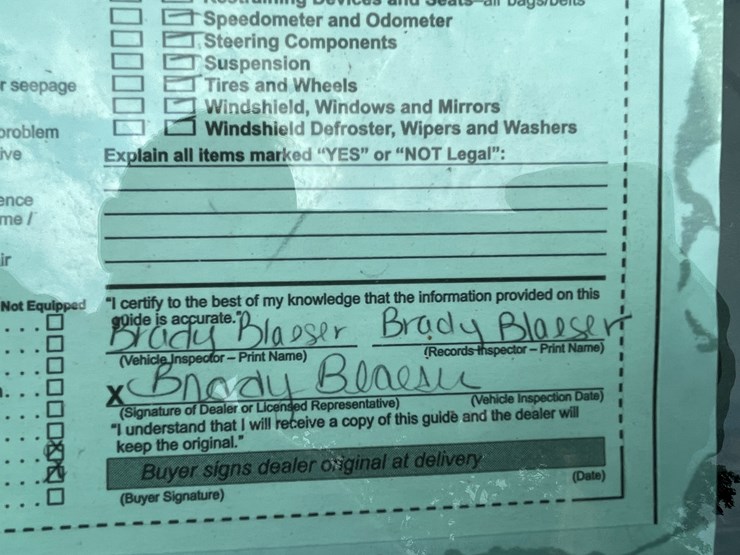 Speedometer and Odometer
Steering Components
Suspension
Tires and Wheels
Windshield, Windows and Mirrors
Windshield Defroster, Wipers and Washers
Explain all items marked “YES” or “NOT Legal”:
r seepage
problem
ive
ence
me /
ir
Not Equipped
"I certify to the best of my knowledge that the information provided on this
guide is accurate."
Brady Blaeser Brady Blaeser
(Vehicle Inspector – Print Name) (Records Inspector – Print Name)
X Brady Blaeser
(Signature of Dealer or Licensed Representative) (Vehicle Inspection Date)
"I understand that I will receive a copy of this guide and the dealer will
keep the original."
Buyer signs dealer original at delivery
(Buyer Signature) (Date)